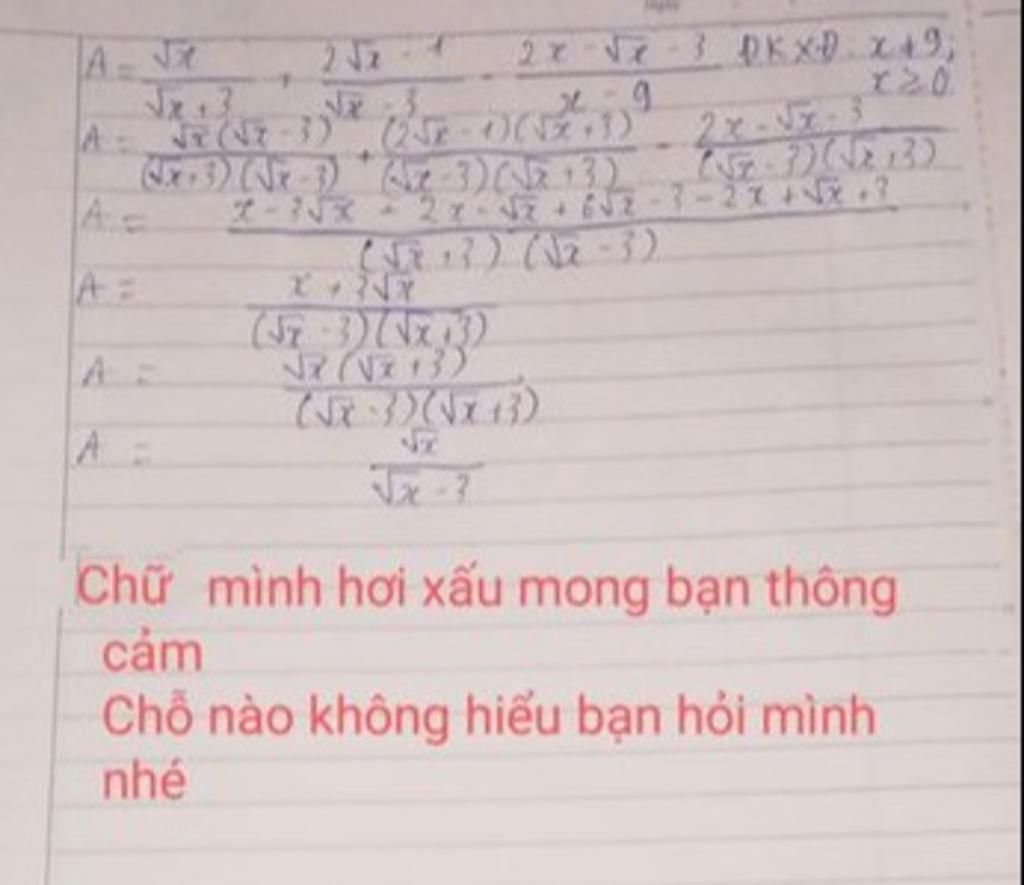 A = √x / (√x + 3) + (2√x - 1) / (√x - 3) - (2x - √x - 3) / (x - 9) ĐKXĐ: x ≠ 9; x ≥ 0
A = √x(√x - 3) / (√x + 3)(√x - 3) + (2√x - 1)(√x + 3) / (√x - 3)(√x + 3) - (2x - √x - 3) / (√x - 3)(√x + 3)
A = (x - 3√x + 2x - √x + 6√x - 3 - 2x + √x + 3) / (√x + 3)(√x - 3)
A = (x + 3√x) / (√x - 3)(√x + 3)
A = √x(√x + 3) / (√x - 3)(√x + 3)
A = √x / (√x - 3)
Chữ mình hơi xấu mong bạn thông
cảm
Chỗ nào không hiểu bạn hỏi mình
nhé